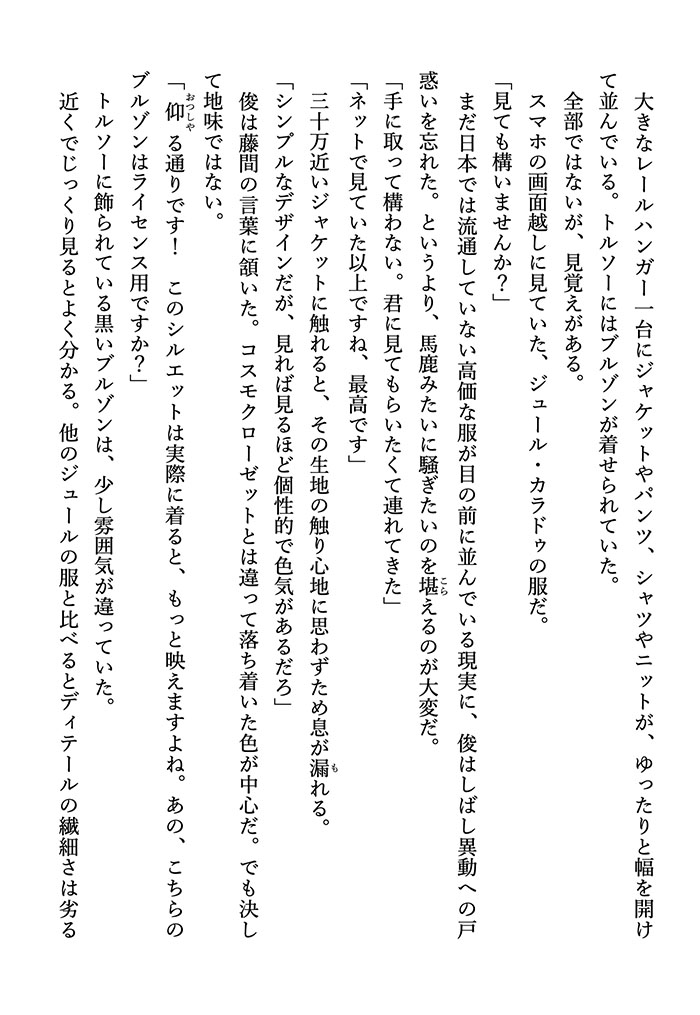 大きなレールハンガー一台にジャケットやパンツ、シャツやニットが、ゆったりと幅を開け
て並んでいる。トルソーにはブルゾンが着せられていた。
　全部ではないが、見覚えがある。
　スマホの画面越しに見ていた、ジュール・カラドゥの服だ。
「見ても構いませんか？」
　まだ日本では流通していない高価な服が目の前に並んでいる現実に、俊はしばし異動への戸
惑いを忘れた。というより、馬鹿みたいに騒ぎたいのを堪こらえるのが大変だ。
「手に取って構わない。君に見てもらいたくて連れてきた」
「ネットで見ていた以上ですね、最高です」
　三十万近いジャケットに触れると、その生地の触り心地に思わずため息が漏もれる。
「シンプルなデザインだが、見れば見るほど個性的で色気があるだろ」
　俊は藤間の言葉に頷いた。コスモクローゼットとは違って落ち着いた色が中心だ。でも決し
て地味ではない。
「仰おつしやる通りです！　このシルエットは実際に着ると、もっと映えますよね。あの、こちらの
ブルゾンはライセンス用ですか？」
　トルソーに飾られている黒いブルゾンは、少し雰囲気が違っていた。
　近くでじっくり見るとよく分かる。他のジュールの服と比べるとディテールの繊細さは劣る